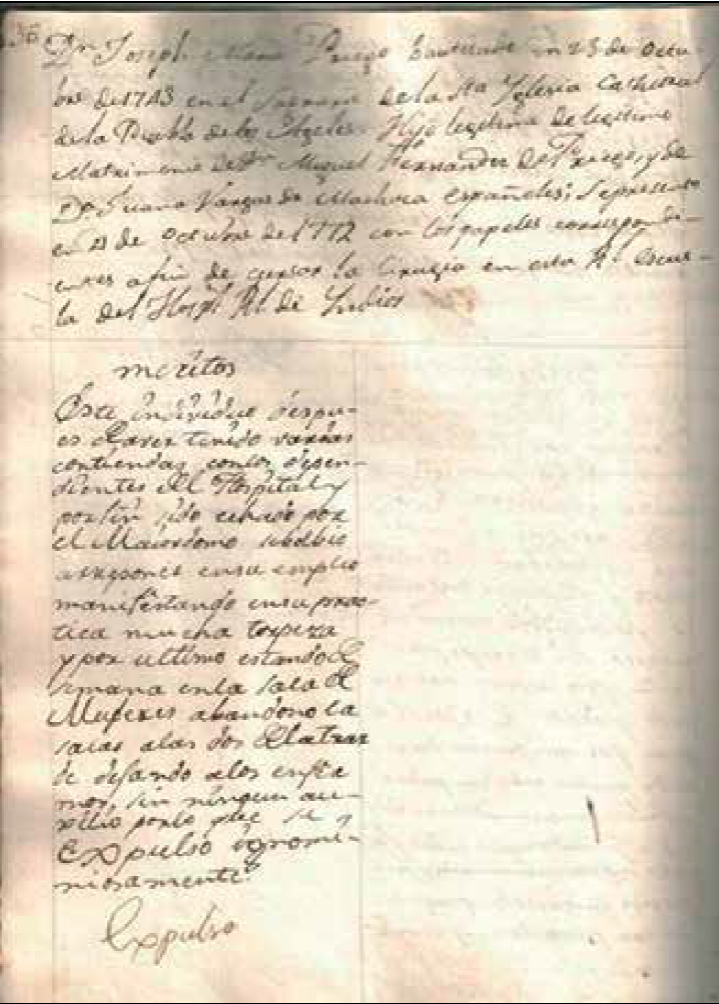 36
Dn Joseph Maria Priego bautizado en 23 de Octu-
bre de 1743 en el Sagrario de la Sta Yglesia Cathedral
de la Puebla de los Angeles Hijo legitimo de legitimo
Matrimonio de Dn Miguel Hernandez de Priego, y de
Da Juana Vargas de Machuca españoles; Se presento
en 23 de Octubre de 1772 con los papeles correspondi-
entes a fin de cursar la Cirugia en esta Rl Escue-
la del Hospl Rl de Yndios
meritos
Este individuo despu-
es de aver tenido varias
contiendas con los depen-
dientes del Hospital y
por fin sido echado por
el Maiordomo se bolbio
a reponer en su empleo
manifestando en su prac-
tica mucha torpeza
y por ultimo estando de
semana en la sala de
Mujeres abandono la
salas a las dos de la tar
de dejando a los enfer
mos, sin ningun au-
xilio por lo que se
Expulso ignomi-
niosamente.
Expulso